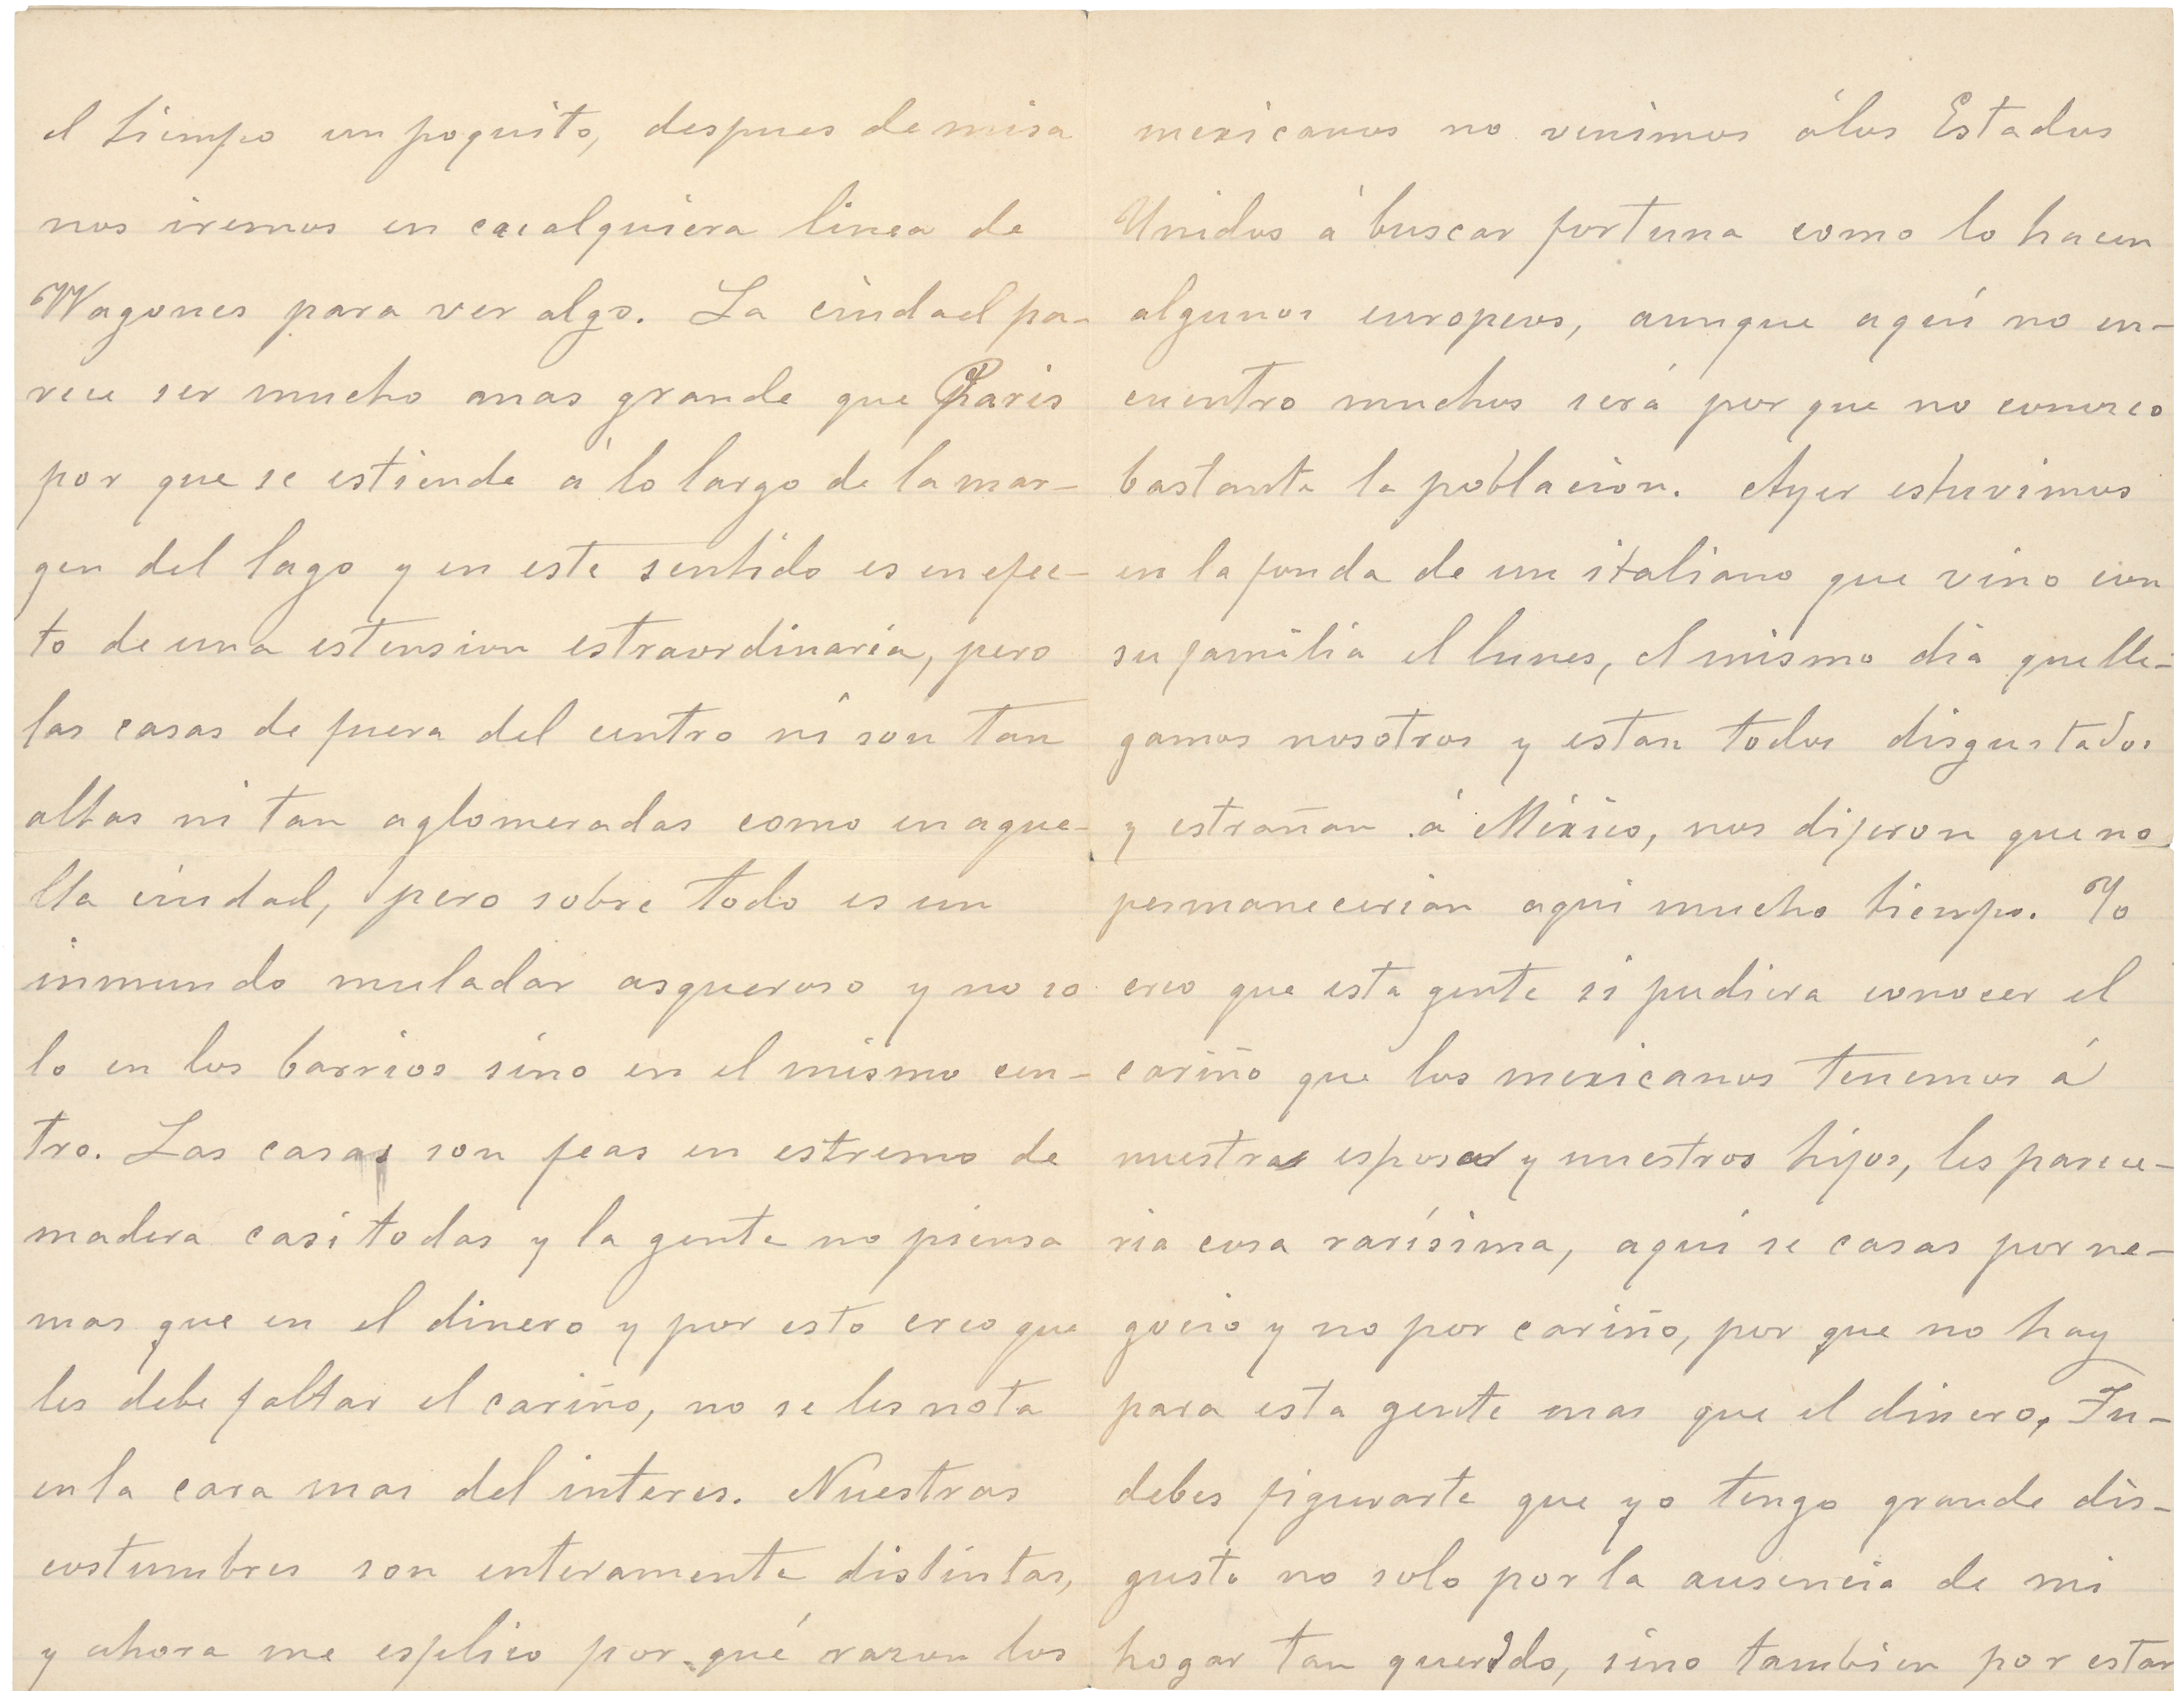 el tiempo un poquito, despues de misa
nos iremos en cualquiera linea de
Wagones para ver algo. La ciudad pa-
rece ser mucho mas grande que Paris
por que se estiende á lo largo de la mar-
gen del lago y en este sentido es en efec-
to de una estension estraordinaria, pero
las casas de fuera del centro ni son tan
altas ni tan aglomeradas como en aque-
lla ciudad, pero sobre todo es un
inmundo muladar asqueroso y no so
lo en los barrios sino en el mismo cen-
tro. Las casas son feas en estremo de
madera casi todas y la gente no piensa
mas que en el dinero y por esto creo que
les debe faltar el cariño, no se les nota
en la cara mas del interes. Nuestras
costumbres son enteramente distintas,
y ahora me esplico por qué razon los
mexicanos no venimos á los Estados
Unidos á buscar fortuna como lo hacen
algunos europeos, aunque aquí no en-
cuentro muchos será por que no conosco
bastante la poblacion. Ayer estuvimos
en la fonda de un italiano que vino con
su familia el lunes, el mismo dia que lle-
gamos nosotros y estan todos disgustados
y estrañan á México, nos dijeron que no
permanecerian aqui mucho tiempo. Yo
creo que esta gente si pudiera conocer el
cariño que los mexicanos tenemos á
nuestras esposas y nuestros hijos, les parece-
ria cosa rarísima, aqui se casas por ne-
gocio y no por cariño, por que no hay
para esta gente mas que el dinero. Tu-
debes figurarte que yo tengo grande dis-
gusto no solo por la ausencia de mi
hogar tan querido, sino tambien por estar